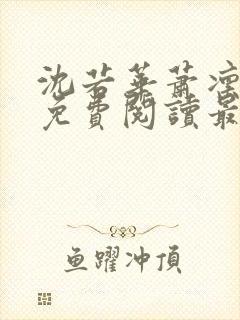 沈若華蕭凜
免費閱讀最
鱼躍冲頂